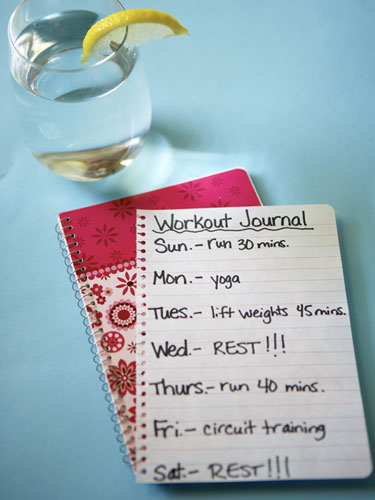 Workout Journal
Sun.- run 30 mins.
Mon.- yoga
Tues.- lift weights 45 mins.
Wed.- REST!!!
Thurs.- run 40 mins.
Fri.- circuit training
Sat.- REST!!!